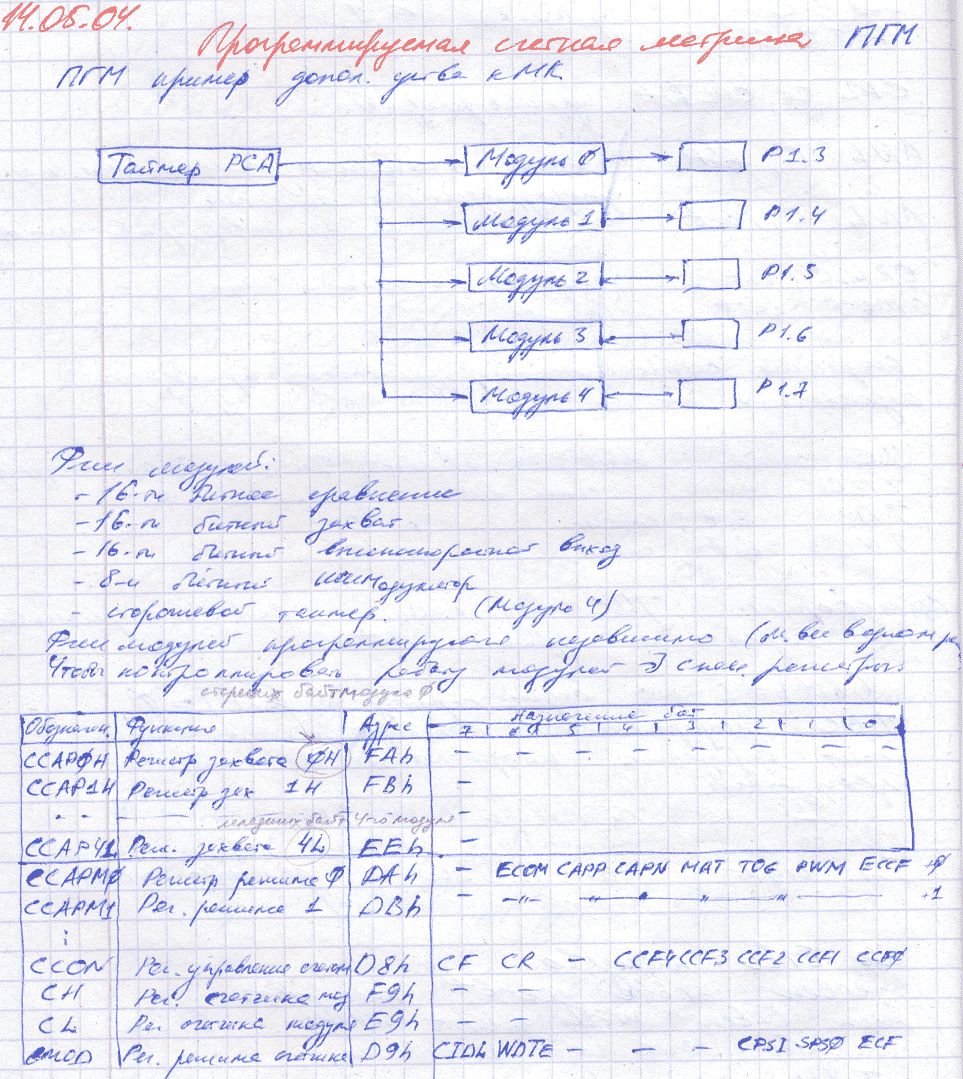 14.05.04.
Программируемая счетная матрица ПГМ
ПГМ пример допол. уства к МК
Таймер PCA
Модуль 0
P1.3
Модуль 1
P1.4
Модуль 2
P1.5
Модуль 3
P1.6
Модуль 4
P1.7
Фции модулей:
- 16-ти битное сравнение
- 16-ти битный захват
- 16-ти битный высокоскоростной выход
- 8-и битный модулятор
- сторожевой таймер. (Модуль 4)
Фции модулей программируются независимо
Чтобы контроллировать работу модулей ∃ спец. регистры
старших байт модуля 0
Обозначен. Функция Адрес Назначение бит
7 6 5 4 3 2 1 0
CCAP0H Регистр захвата 0H FAh - - - - - - - -
CCAP1H Регистр зах 1H FBh -
младших байт 4го модуля
CCAP4L Рег. захвата 4L EEh -
CCAPM0 Регистр режима 0 DAh - ECOM CAPP CAPN MAT TOG PWM ECCF +0
CCAPM1 Рег. режима 1 DBh - -"- " " " +1
CCON Рег. управление счетом D8h CF CR - CCF4 CCF3 CCF2 CCF1 CCF0
CH Рег. счетчика мод F9h - -
CL Рег счетчика модуля E9h - -
CMOD Рег. режима счетчика D9h CIDL WDTE - - - CPS1 SPS0 ECF